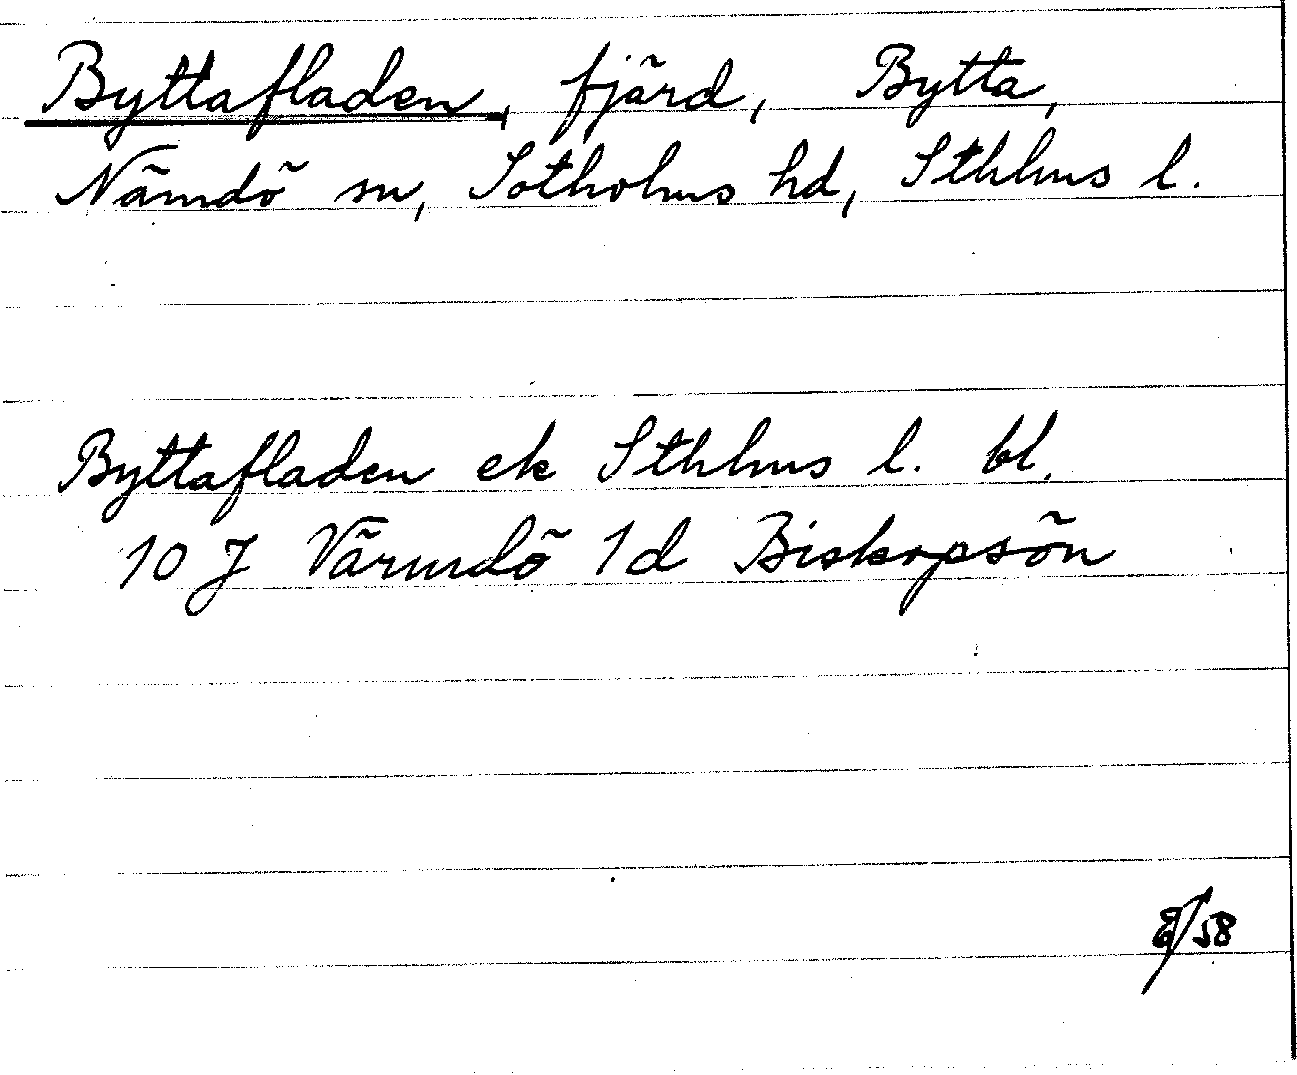 Byttafladen, fjärd, Bytta,
Nämdö sn, Sotholms hd, Sthlms l.
Byttafladen ek Sthlms l. bl.
10 J Värmdö 1d Biskopsön
/58